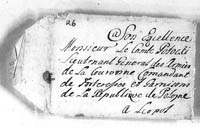 R6
a Son Excellence
Monsieur Le Comte Potocki
Lieutenant General des
De La Couronne Comandant
de Forteresse et Garnisons
de La Republique de Pologne
a Leopol